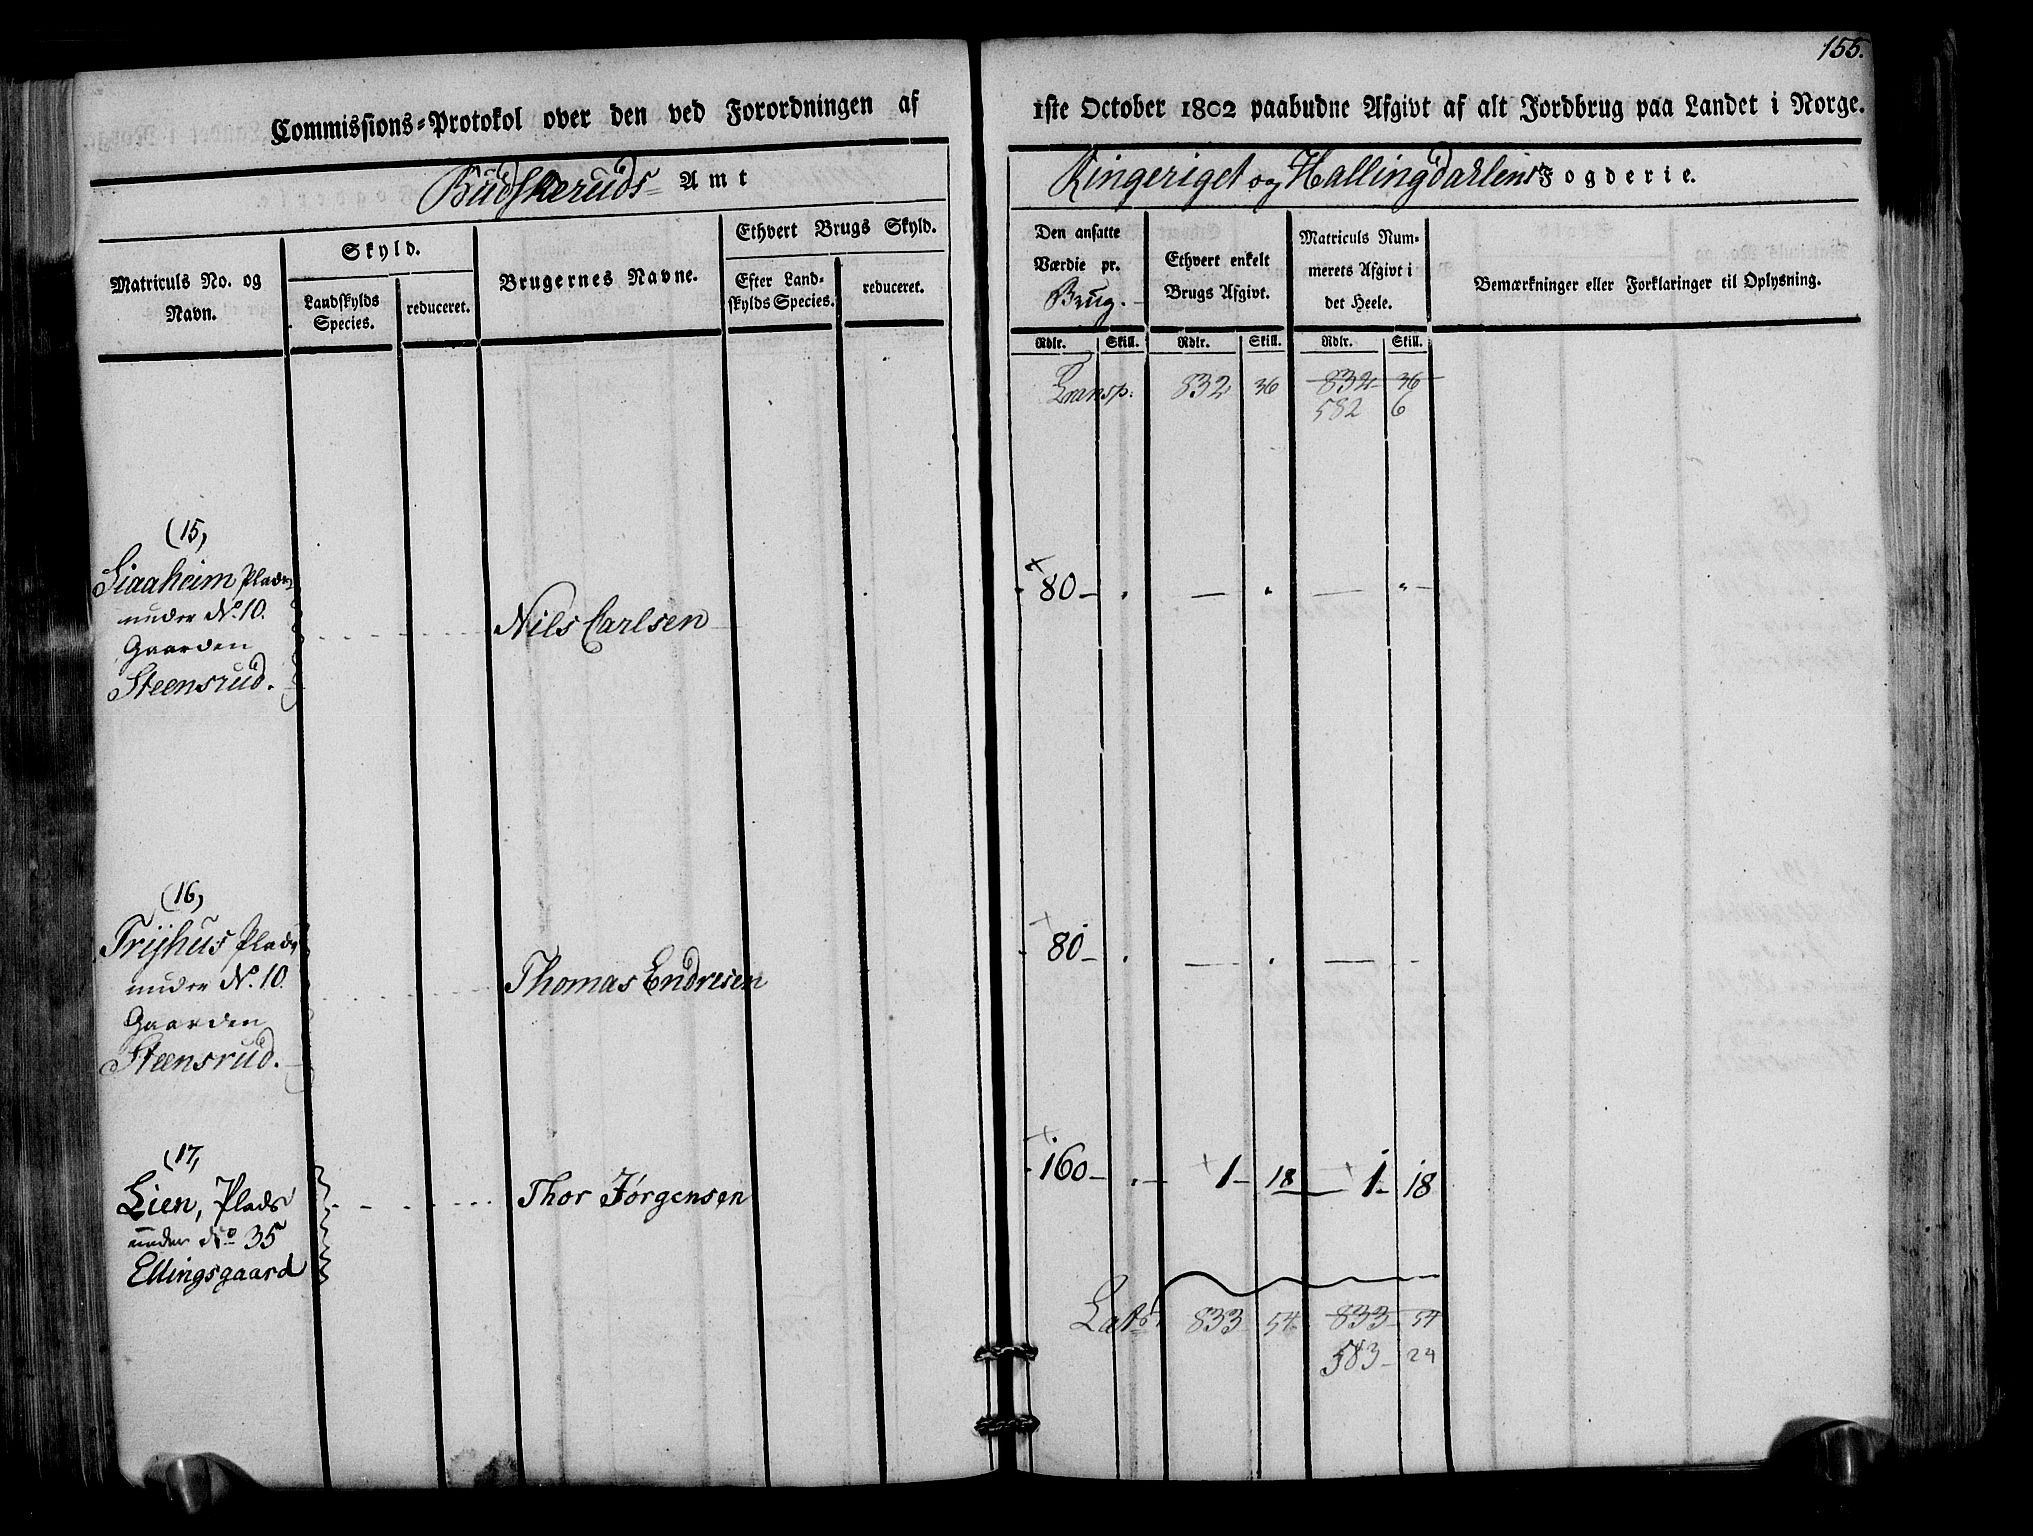 155.
Commissions-Protokol over den ved Forordningen af 1ste October 1802 paabudne Afgivt af alt Jordbrug paa Landet i Norge.
Budskeruds Amt
Ringeriget og Hallingdahlens Fogderie.
Matriculs No. og Navn.
Skyld.
Landskylds Species.
reduceret.
Brugernes Navne.
Ethvert Brugs Skyld.
Efter Landskylds Species.
reduceret.
Den ansatte Værdie pr. Brug.
Ethvert enkelt Brugs Afgivt.
Matriculs Nummerets Afgivt i det Heele.
Bemærkninger eller Forklaringer til Oplysning.
Rdlr. Skill. Rdlr. Skill. Rdlr. Skill.
Transp: 832 36 832 36
582 6
(15)
Siaaheim Plads
under No. 10.
Gaarden
Steensrud.
Nils Carlsen
80
(16)
Trijhus Plads
under No. 10
Gaarden
Steensrud.
Thomas Endresen
80
(17)
Lien, Plads
under No 35
Ellingsgaard
Thor Jörgensen
160 1 18 1 18
Lats 833 54 833 54
583 24